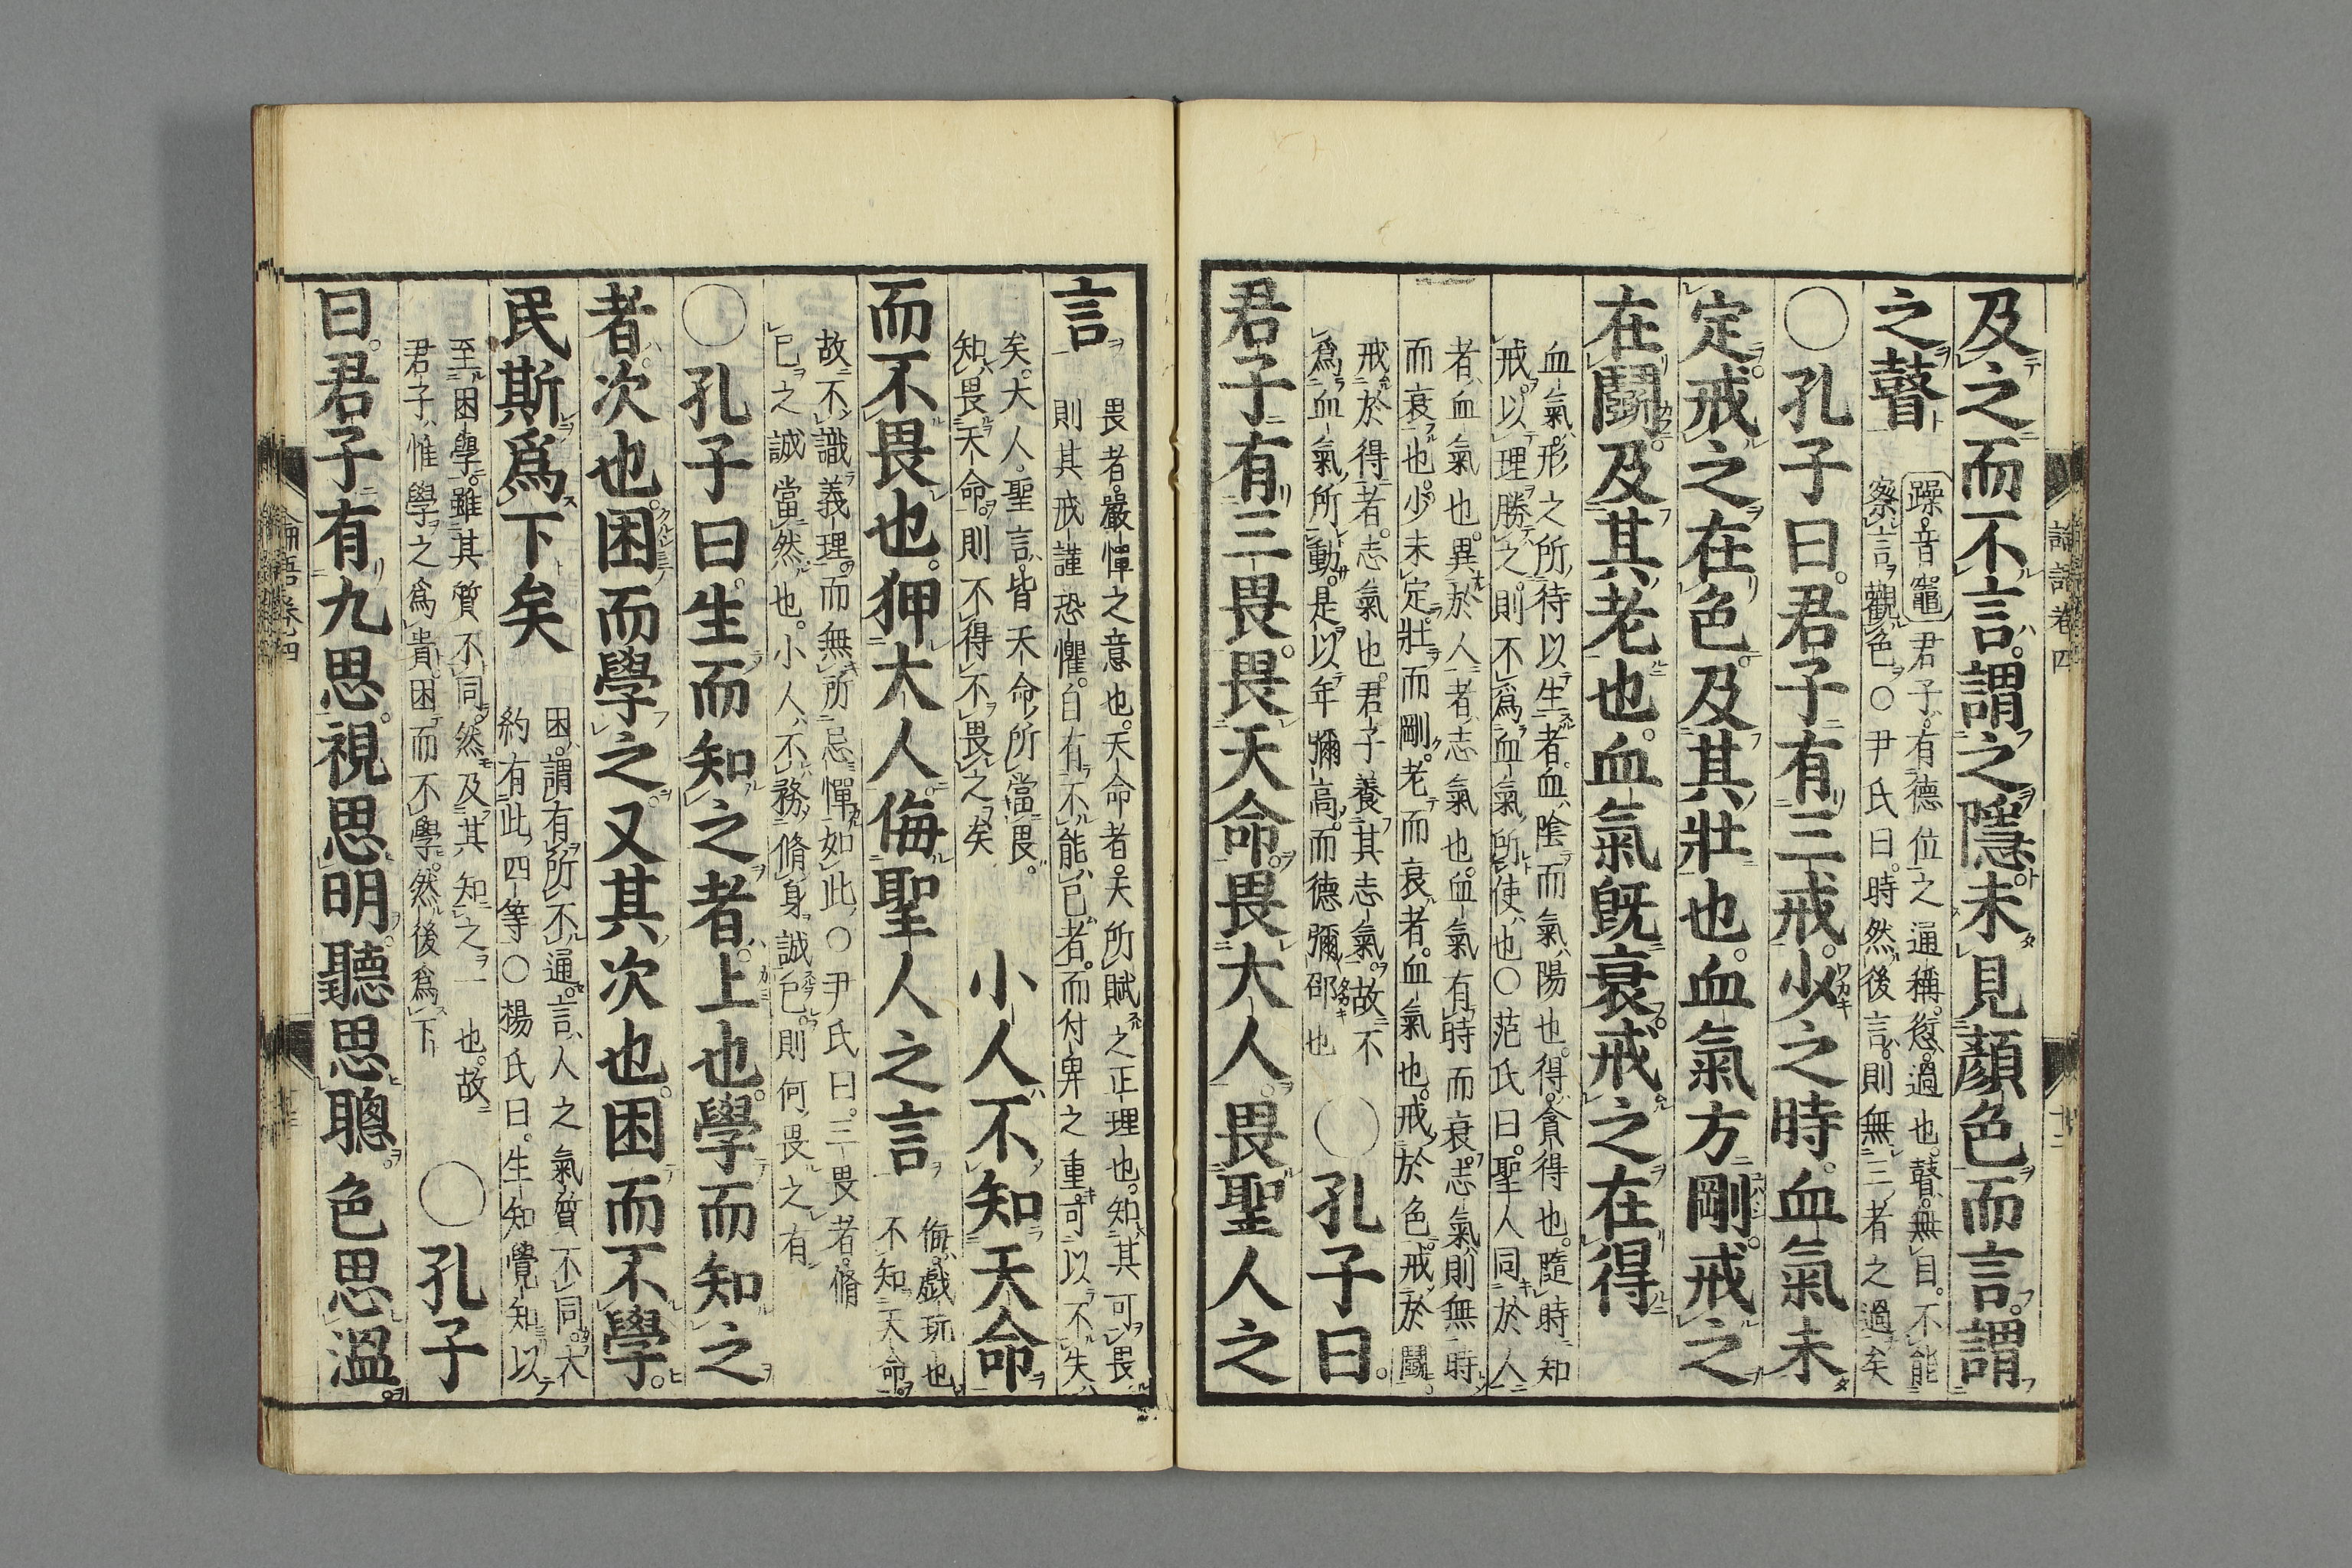 及之而不言謂之隱未見顏色而言謂
之瞽
躁音竈君子有德位之通稱愆過也瞽無目不能
察言觀色○尹氏曰時然後言則無三者之過矣
○孔子曰君子有三戒少之時血氣未
定戒之在色及其壯也血氣方剛戒之
在鬭及其老也血氣既衰戒之在得
血氣形之所待以生者血陰而氣陽也得貪得也隨時知
戒以理勝之則不爲血氣所使也○范氏曰聖人同於人
者血氣也異於人者志氣也血氣有時而衰志氣則無時
而衰也少未定壯而剛老而衰者血氣也戒於色戒於鬭
戒於得者志氣也君子養其志氣故不
爲血氣所動是以年彌高而德彌邵也
○孔子曰
君子有三畏畏天命畏大人畏聖人之
論語卷四
十二
言
畏者嚴憚之意也天命者天所賦之正理也知其可畏
則其戒謹恐懼自有不能已者而付畀之重可以不失
矣大人聖言皆天命所當畏
知畏天命則不得不畏之矣
小人不知天命
而不畏也狎大人侮聖人之言
侮戲玩也
不知天命
故不識義理而無所忌憚如此○尹氏曰三畏者脩
已之誠當然也小人不務脩身誠已則何畏之有
○孔子曰生而知之者上也學而知之
者次也困而學之又其次也困而不學
民斯爲下矣
困謂有所不通言人之氣質不同大
約有此四等○楊氏曰生知學知以
至困學雖其質不同然及其知之一也故
君子惟學之爲貴困而不學然後爲下
○孔子
曰君子有九思視思明聽思聰色思溫
論語卷四